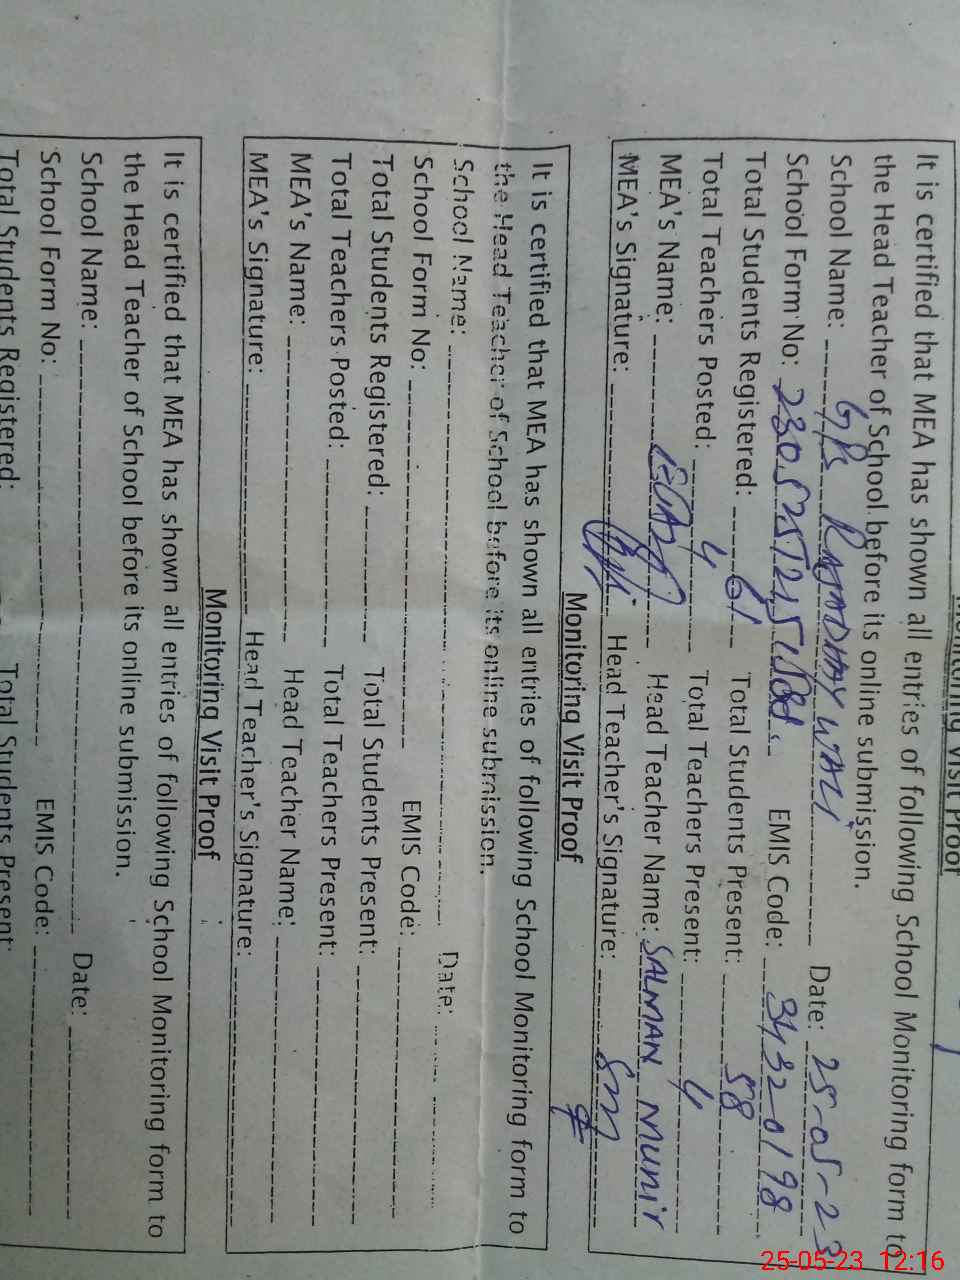 Monitoring Visit Proof
It is certified that MEA has shown all entries of following School Monitoring form to
the Head Teacher of School before its online submission.
School Name: Date: 25-05-23
School Form No: EMIS Code: 34320198
Total Students Registered: 61 Total Students Present: 58
Total Teachers Posted: 4 Total Teachers Present: 4
MEA's Name: Head Teacher Name: SALMAN MUNIR
MEA's Signature: Head Teacher's Signature:
Monitoring Visit Proof
It is certified that MEA has shown all entries of following School Monitoring form to
the Head Teacher of School before its online submission.
School Name: Date:
School Form No: EMIS Code:
Total Students Registered: Total Students Present:
Total Teachers Posted: Total Teachers Present:
MEA's Name: Head Teacher Name:
MEA's Signature: Head Teacher's Signature:
Monitoring Visit Proof
It is certified that MEA has shown all entries of following School Monitoring form to
the Head Teacher of School before its online submission.
School Name: Date:
School Form No: EMIS Code:
Total Students Registered: Total Students Present:
25-05-23 12:16